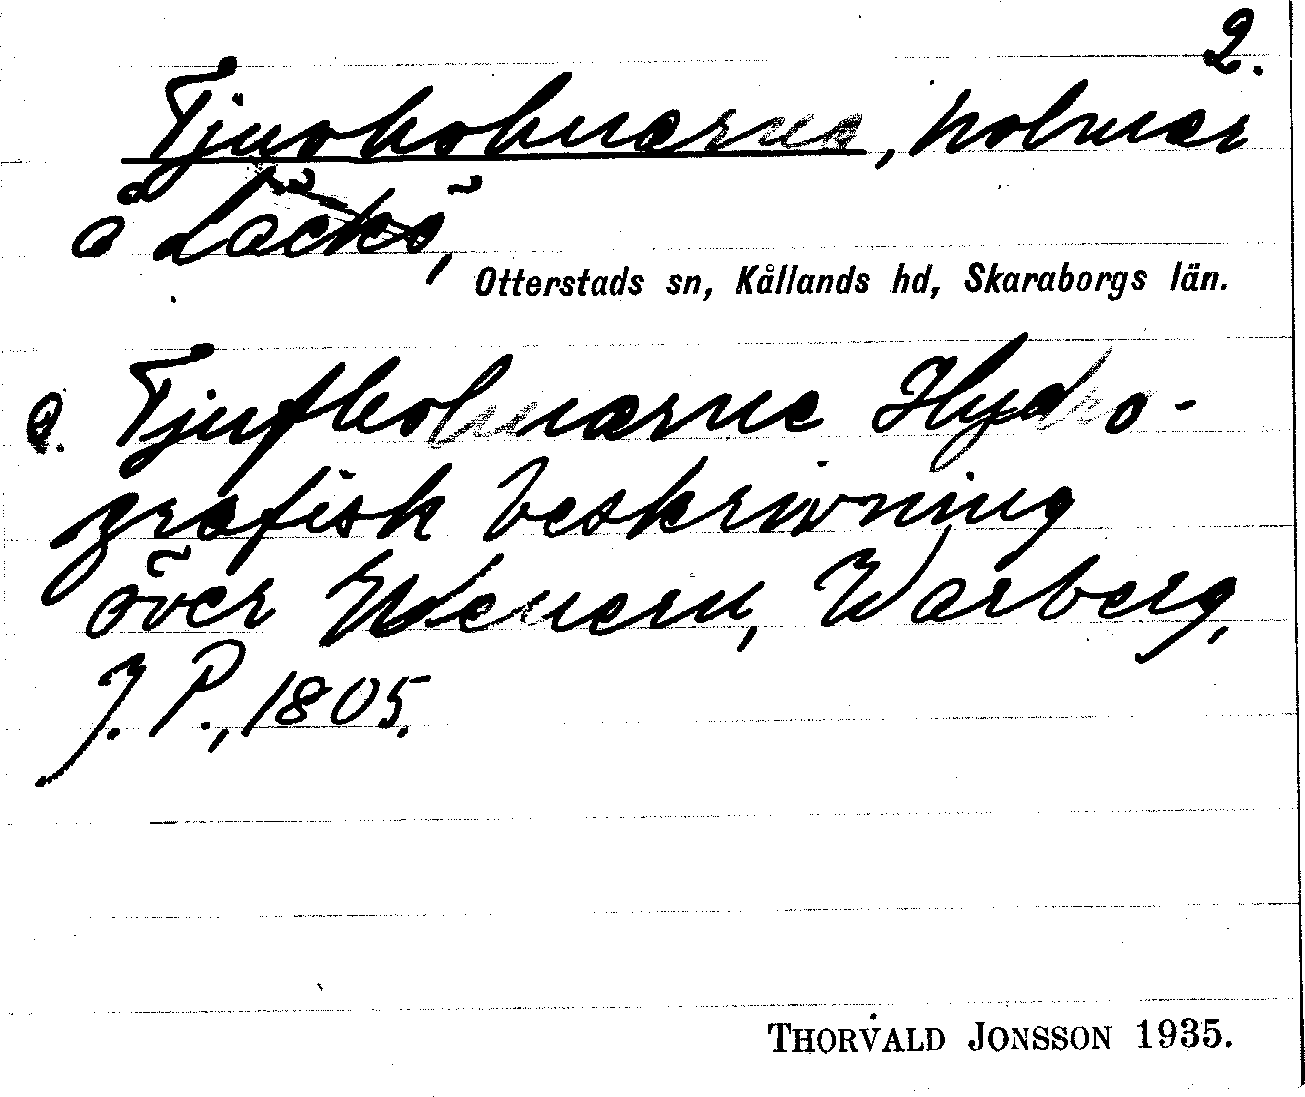 2.
Tjuvholmarna, holmar
å Läckö,
Otterstads sn, Kållands hd, Skaraborgs län.
a. Tjufholmarna Hydro-
grafisk beskrivning
över Wenern, Warberg,
J. P., 1805.
THORVALD JONSSON 1935.